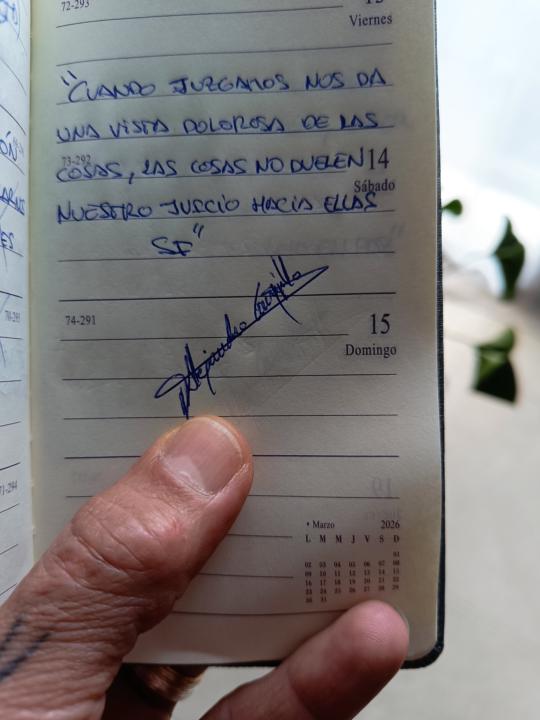 72-293
13
Viernes
"CUANDO JUZGAMOS NOS DA
UNA VISTA DOLOROSA DE LAS
73-292
COSAS, LAS COSAS NO DUELEN
14
Sábado
NUESTRO JUSCIO HACIA ELLAS
SF"
74-291
15
Domingo
Alejandro
Marzo 2026
L M M J V S D
01
02 03 04 05 06 07 08
09 10 11 12 13 14 15
16 17 18 19 20 21 22
23 24 25 26 27 28 29
30 31